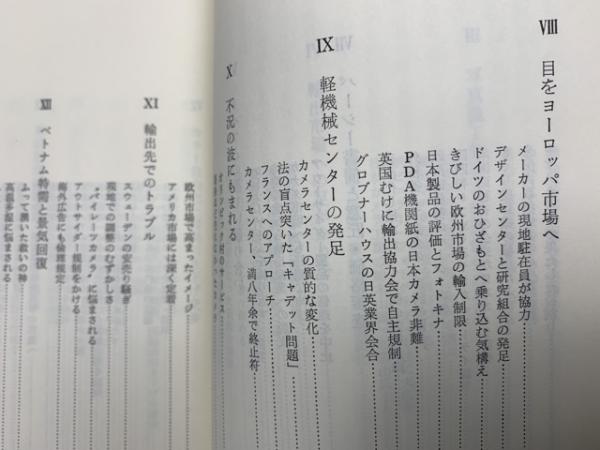 VIII 目をヨーロッパ市場へ
メーカーの現地駐在員が協力
デザインセンターと研究組合の発足
ドイツのおひざもとへ乗り込む気構え
きびしい欧州市場の輸入制限
日本製品の評価とフォトキナ
PDA機関紙の日本カメラ非難
英国むけに輸出協力会で自主規制
グロブナーハウスの日英業界会合
IX 軽機械センターの発足
カメラセンターの質的な変化
法の盲点突いた「キャデット問題」
フランスへのアプローチ
カメラセンター、満八年余で終止符
X 不況の波にもまれる
オリンピック村のサービス
欧州市場で高まったイメージ
アメリカ市場には深く定着
XI 輸出先でのトラブル
スウェーデンの安売り騒ぎ
現地での調整のむずかしさ
“パイレーツカメラ”に悩まされる
アウトサイダー規制をかける
海外広告にも倫理規定
XII ベトナム特需と景気回復
ふって湧いた救いの神